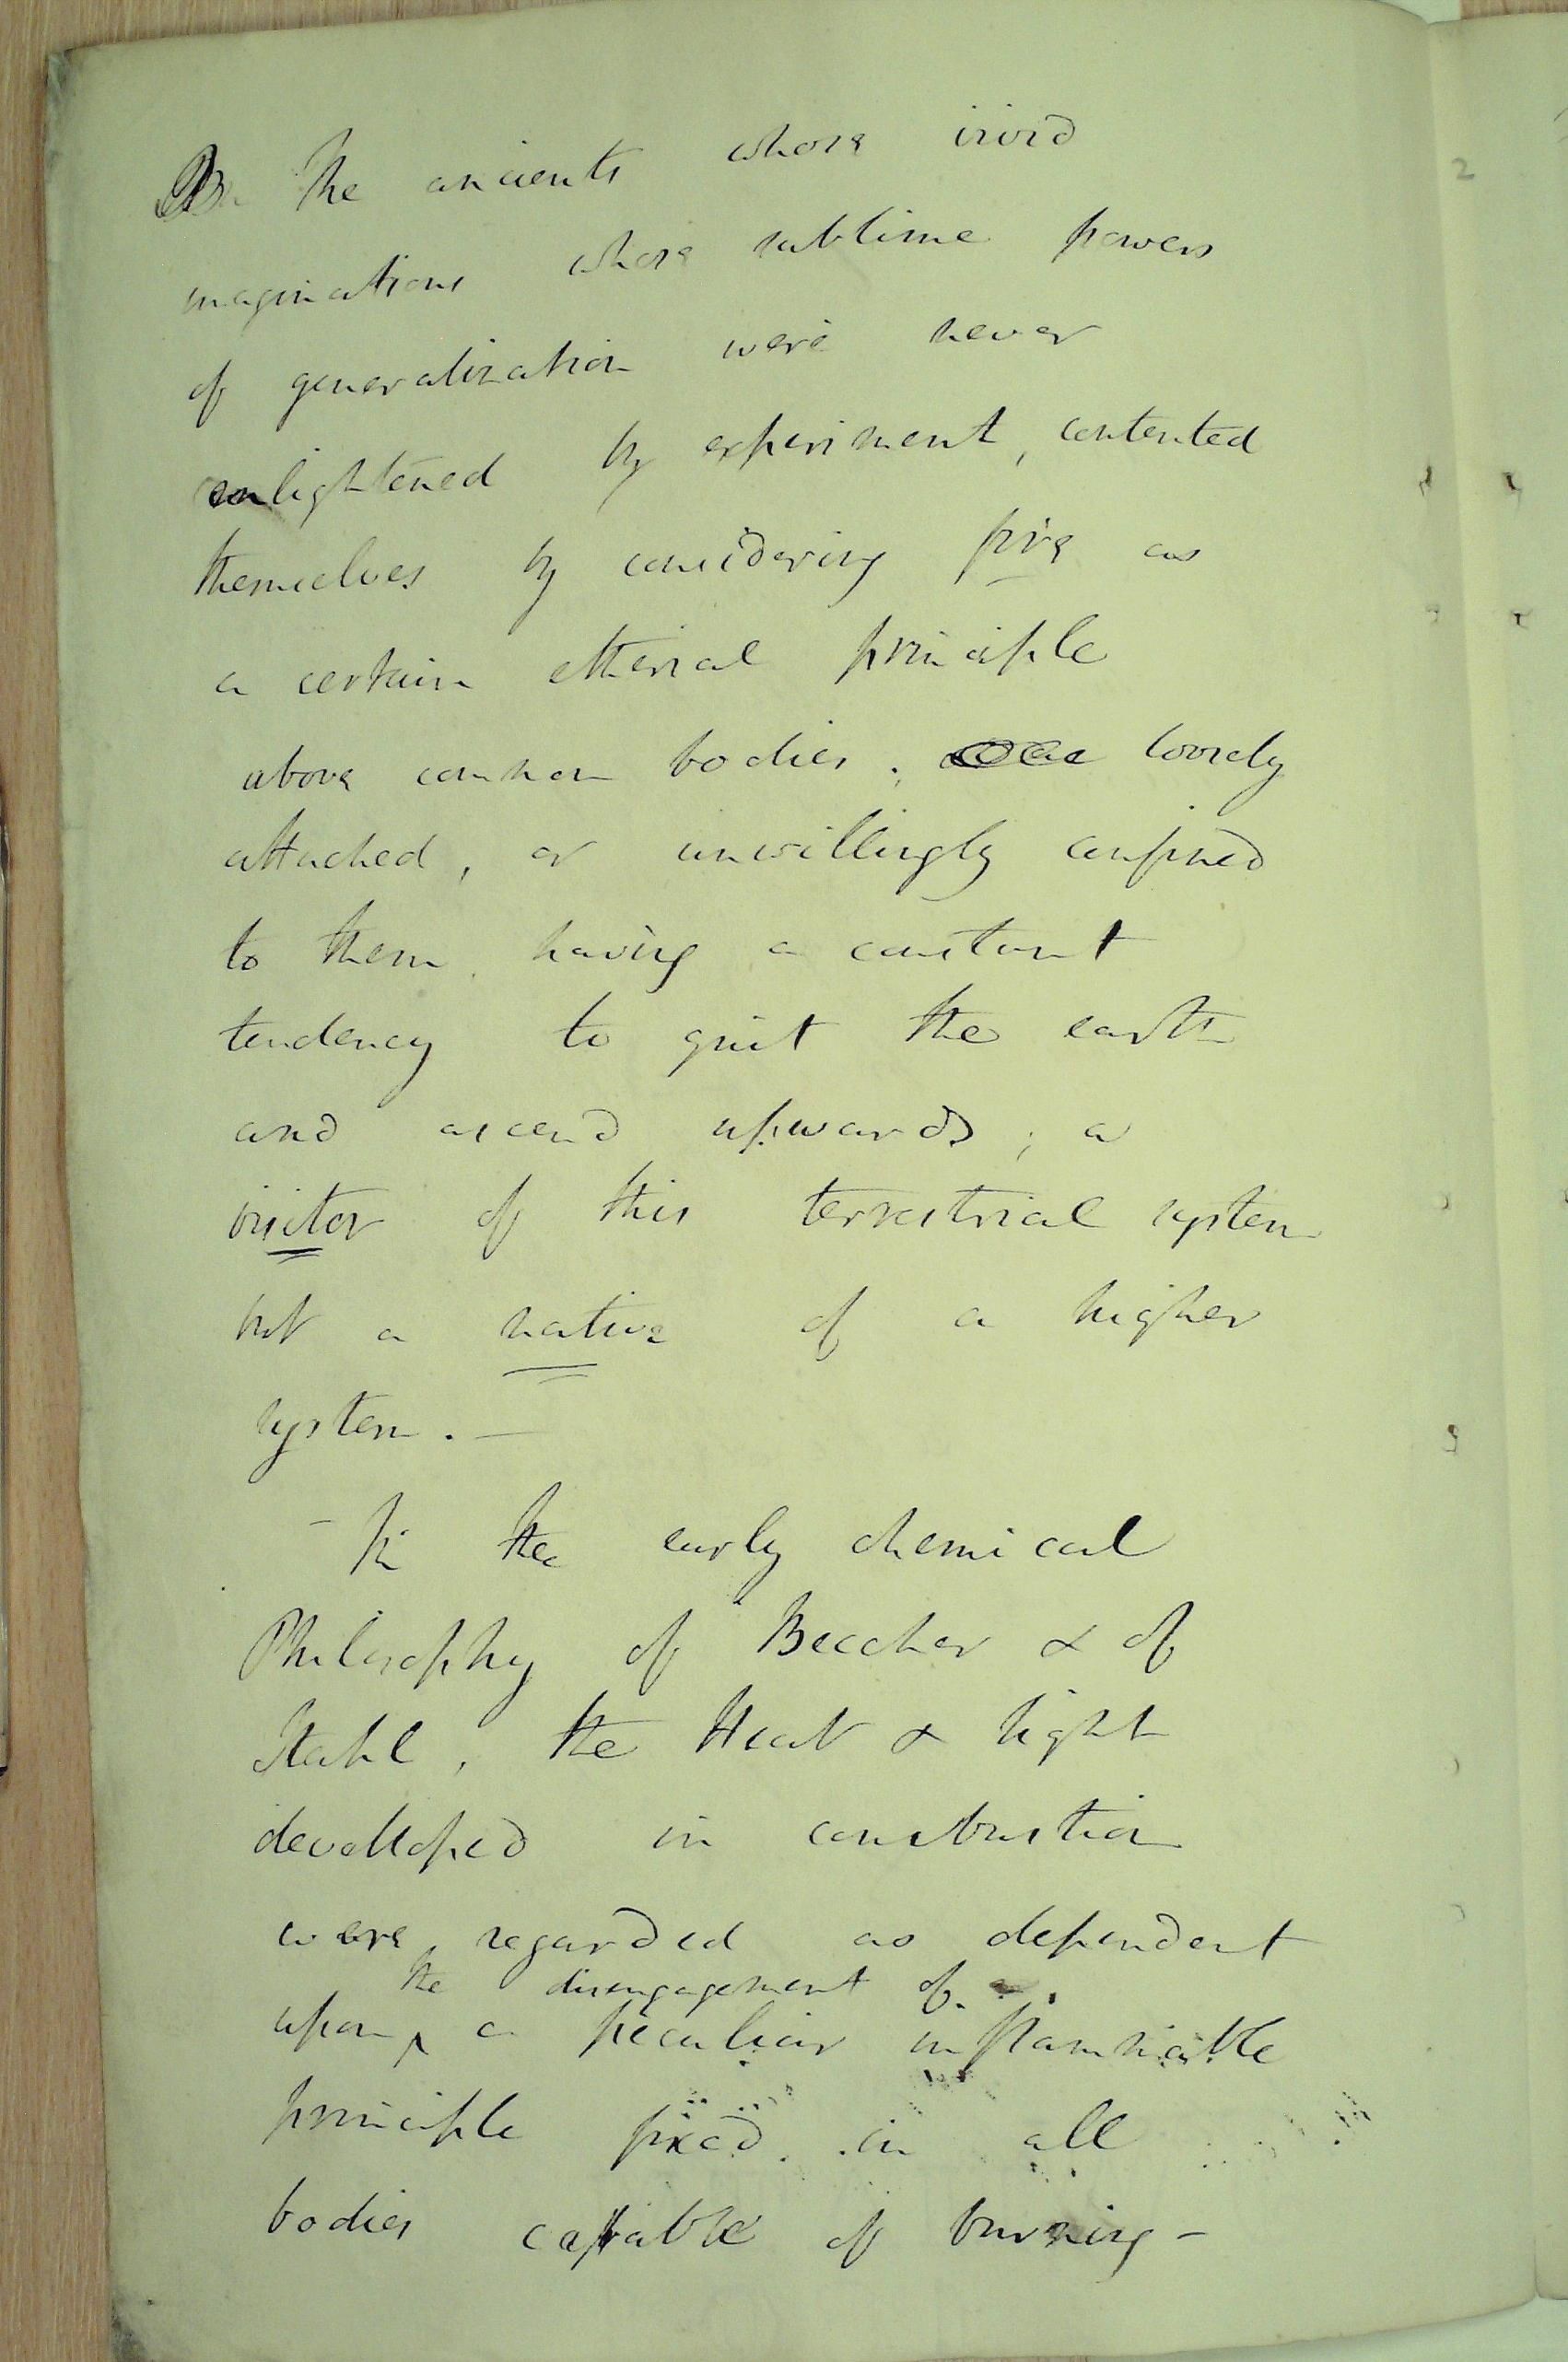 The ancients whose vivid
imaginations whose sublime powers
of generalization were never
enlightened by experiment, contented
themselves by considering fire as
a certain etherial principle
above common bodies; loosely
attached, or unwillingly confined
to them, having a constant
tendency to quit the earth
and ascend upwards; a
visitor of this terrestrial system
but a native of a higher
system. —
– In the early chemical
Philosophy of Beccher & of
Stahl, the Heat & light
develloped in combustion
were regarded as dependent
the disengagement of
upon ^ a peculiar inflammable
principle fixed in all
bodies capable of burning –
2